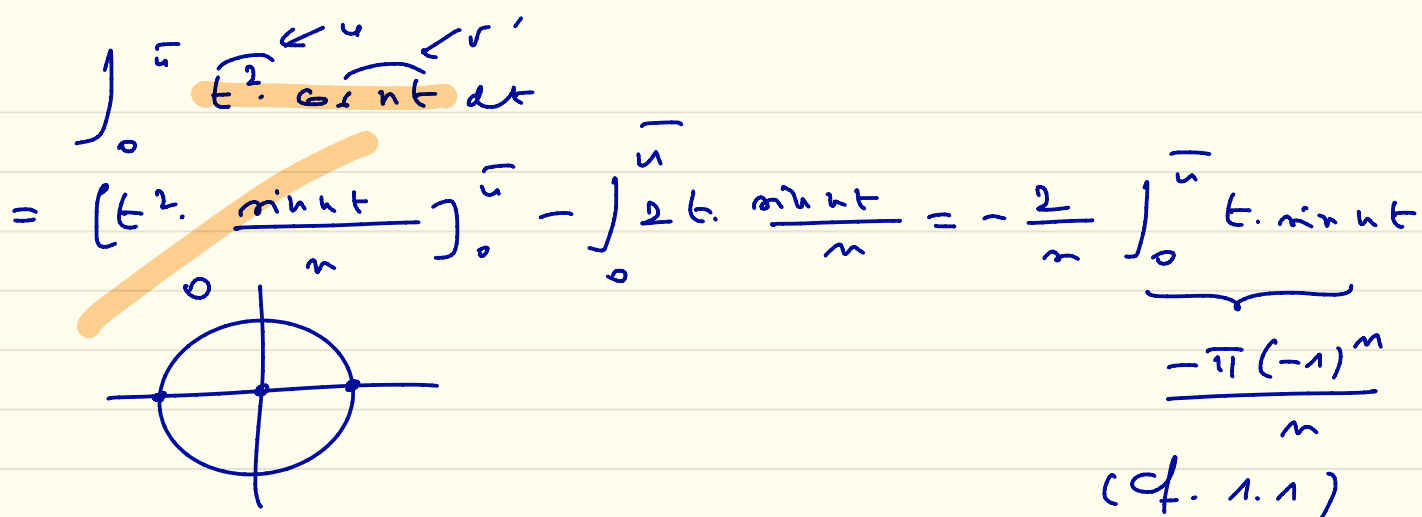 ∫₀^π t². cos nt dt ← u ← v'
= [t². sin nt / n]₀^π - ∫₀^π 2t. sin nt / n = - 2/n ∫₀^π t. sin nt
0
-π(-1)^n / n
(cf. 1.1)